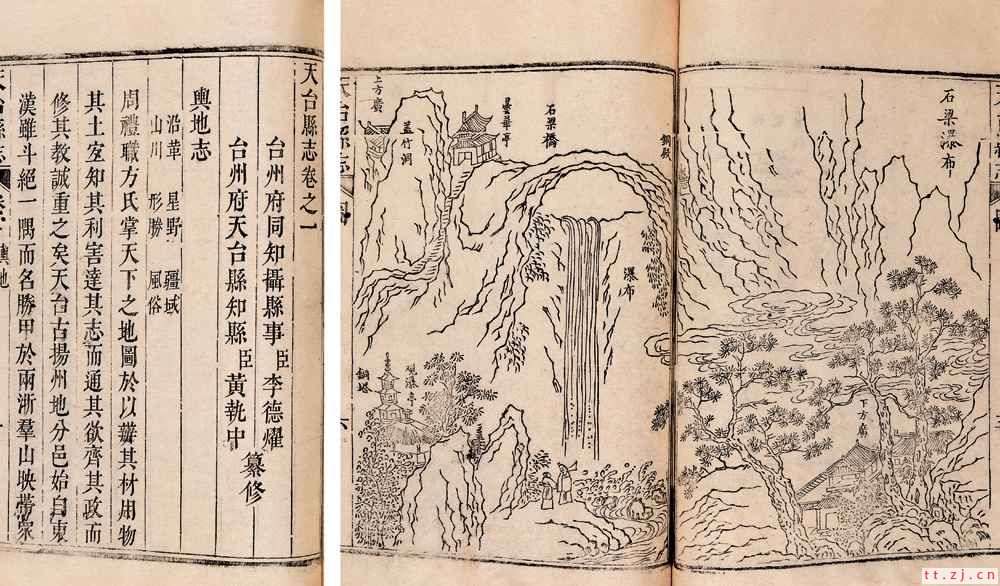 天台縣志卷之一
台州府同知攝縣事臣李德燿
台州府天台縣知縣臣黃執中
纂修
輿地志
沿革 星野 疆域
山川 形勝 風俗
周禮職方氏掌天下之地圖於以辨其材用物
其土宜知其利害達其志而通其欲齊其政而
修其教誠重之矣天台古揚州地分邑始自東
漢雖斗絕一隅而名勝甲於兩浙羣山映帶衆
天台縣志
輿地
石梁瀑布
下方廣
銅殿
石梁橋
曇華亭
蓋竹洞
上方廣
瀑布
觀瀑亭
銅塔
天台縣志
圖
六
tt.zj.cn